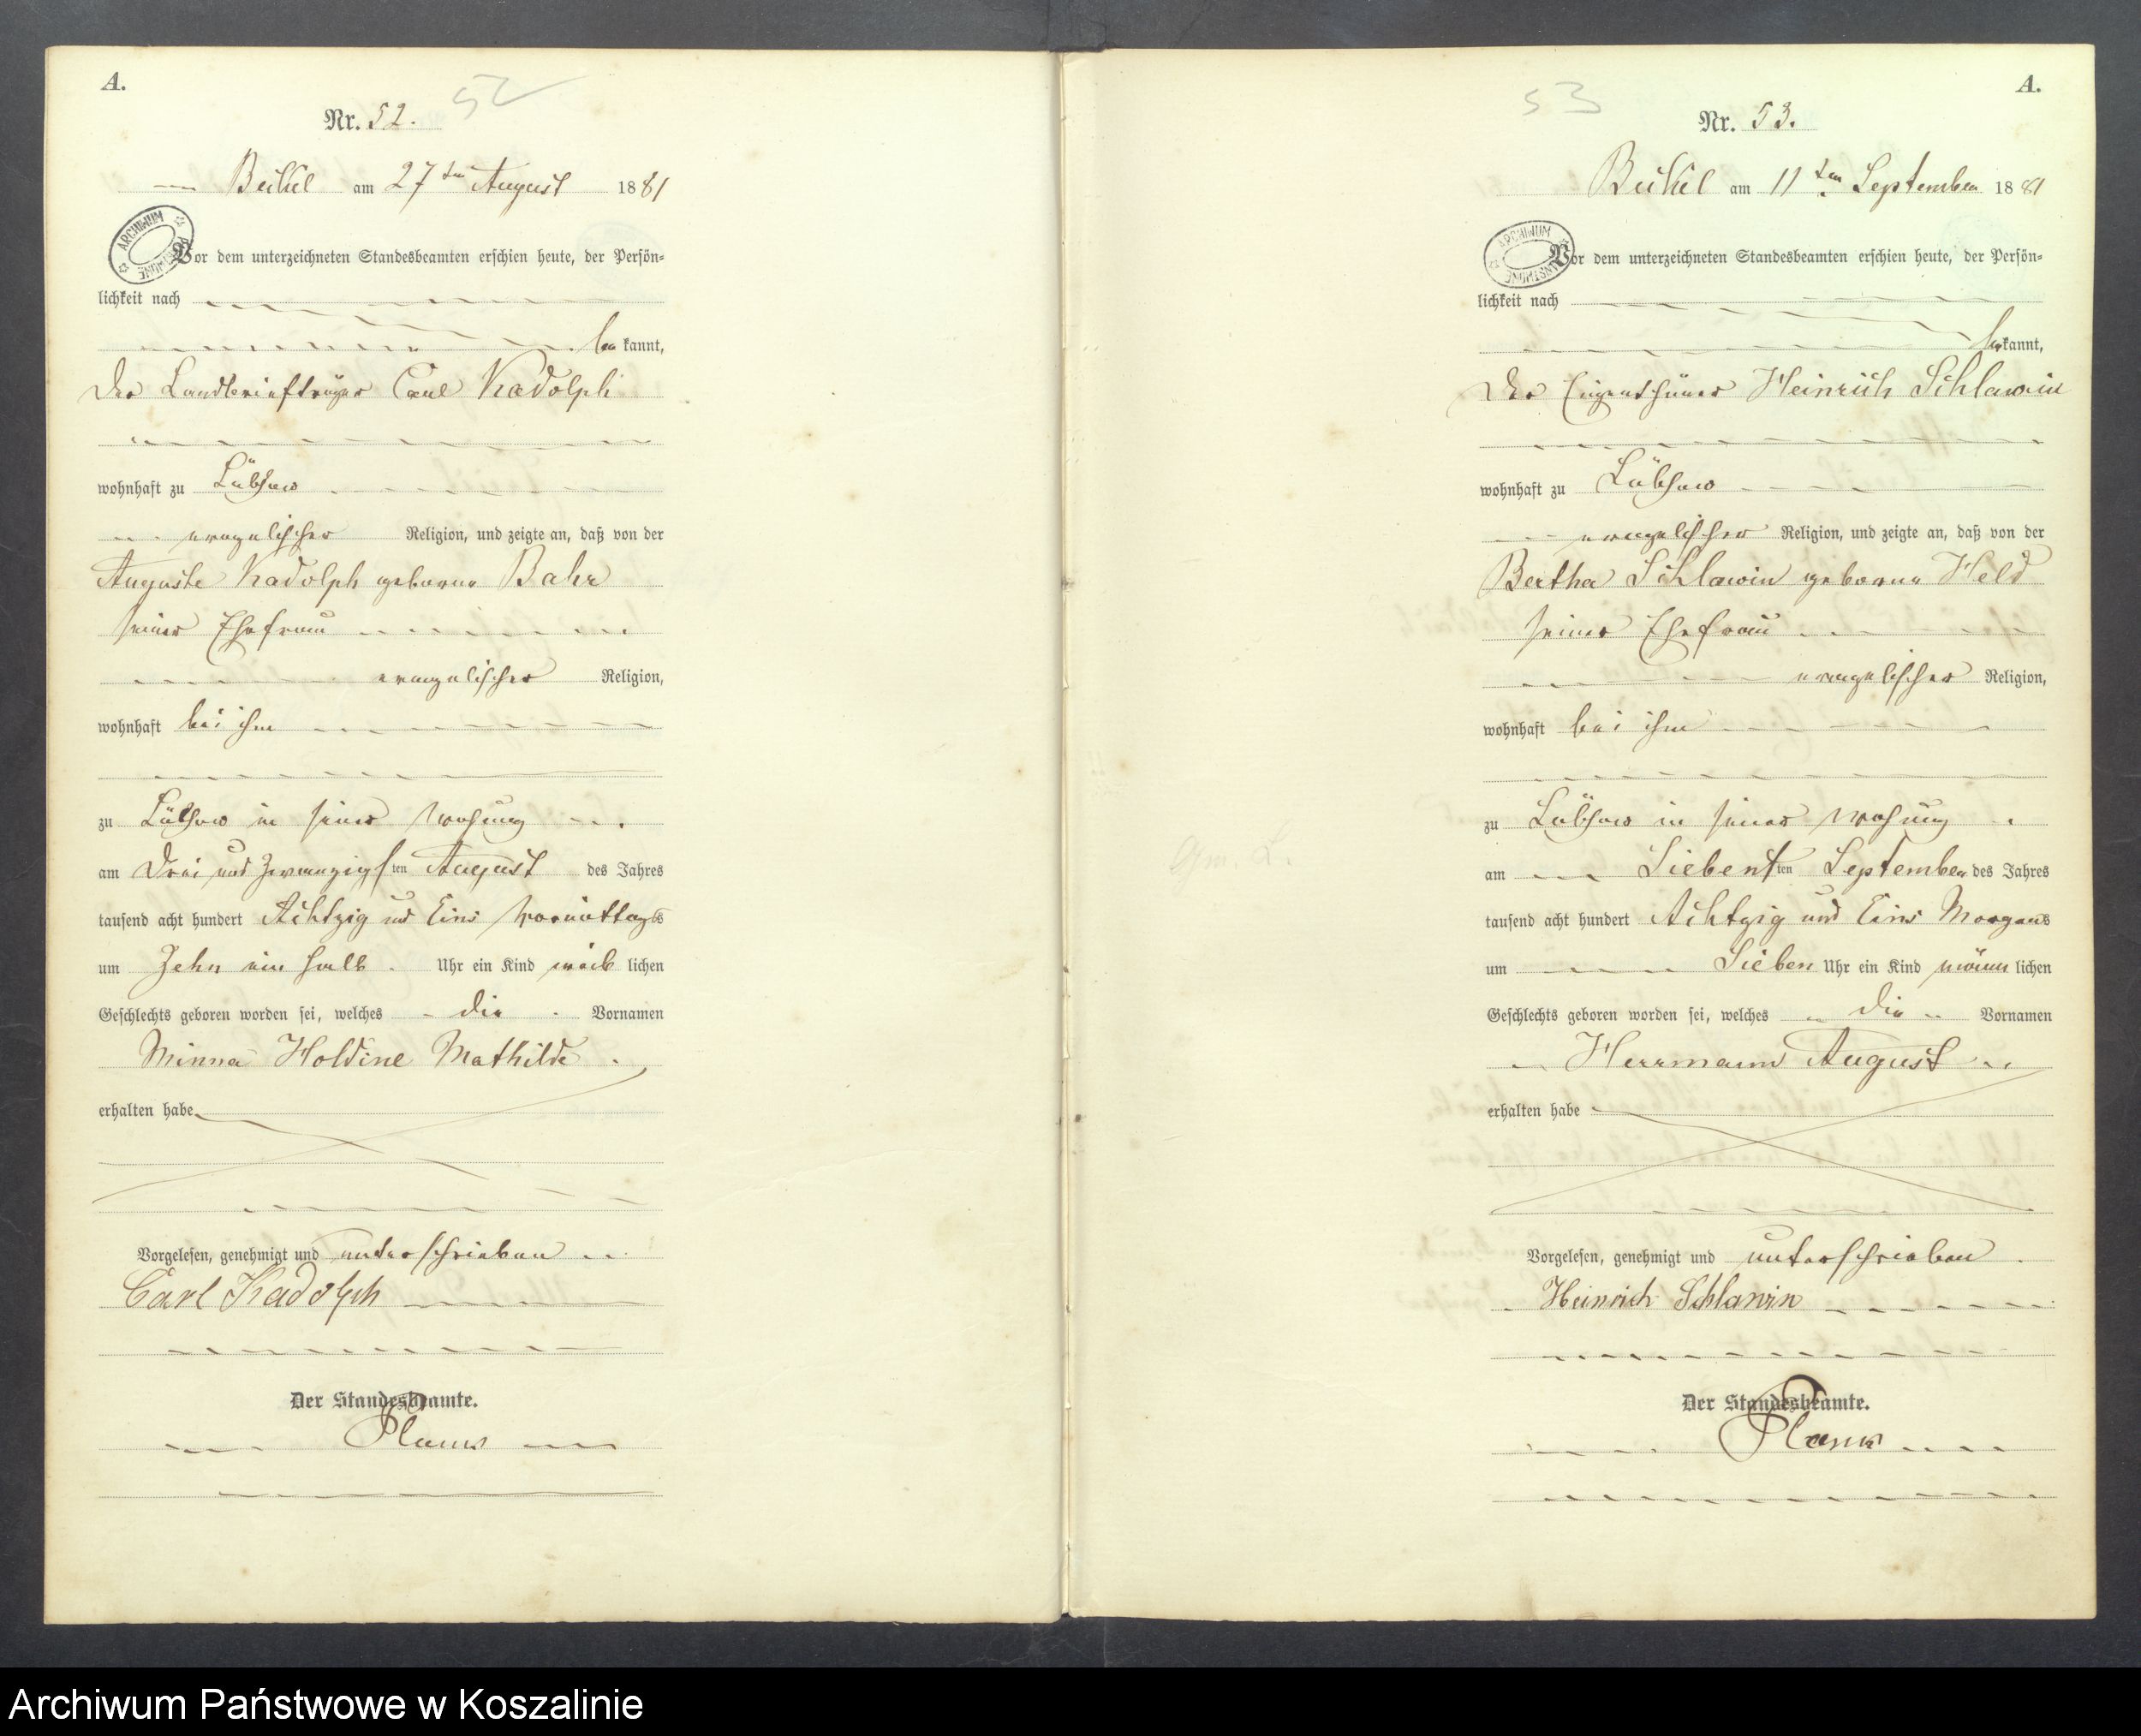 A.
52
Nr. 52.
Beikel am 27ten August 1881
ARCHIWUM
Vor dem unterzeichneten Standesbeamten erschien heute, der Persön-
lichkeit nach
be kannt,
der Landbriefträger Carl Kadolph
wohnhaft zu Lübchow
evangelischer Religion, und zeigte an, daß von der
Auguste Kadolph geborene Bahr
seiner Ehefrau
evangelischer Religion,
wohnhaft bei ihm
zu Lübchow in seiner Wohnung
am Drei und Zwanzigsten August des Jahres
tausend acht hundert Achtzig und Eins Vormittags
um Zehn ein halb Uhr ein Kind weib lichen
Geschlechts geboren worden sei, welches die Vornamen
Minna Holdine Mathilde
erhalten habe
Vorgelesen, genehmigt und unterschrieben
Carl Kadolph
Der Standesbeamte.
A.
53
Nr. 53.
Beikel am 11ten September 1881
ARCHIWUM
Vor dem unterzeichneten Standesbeamten erschien heute, der Persön-
lichkeit nach
be kannt,
der Eigenthümer Heinrich Schlawin
wohnhaft zu Lübchow
evangelischer Religion, und zeigte an, daß von der
Bertha Schlawin geborene Held
seiner Ehefrau
evangelischer Religion,
wohnhaft bei ihm
zu Lübchow in seiner Wohnung
am Siebenten September des Jahres
tausend acht hundert Achtzig und Eins Morgens
um Sieben Uhr ein Kind männ lichen
Geschlechts geboren worden sei, welches die Vornamen
Herrmann August
erhalten habe
Vorgelesen, genehmigt und unterschrieben
Heinrich Schlawin
Der Standesbeamte.
Archiwum Państwowe w Koszalinie